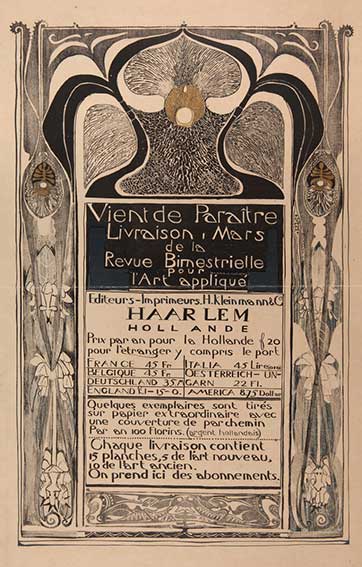 Vient de Paraitre
Livraison, Mars
de la
Revue Bimestrielle
pour
l'Art appliqué
Editeurs-Imprimeurs, H. Kleinmann & Co
HAARLEM
HOLLANDE
Prix par an pour la Hollande ƒ 20
pour l'etranger y compris le port
FRANCE 45 Fr. ITALIA 45 Lire
BELGIQUE 45 Fr. OESTERREICH-UN-
DEUTSCHLAND 35 M GARN 22 Fl.
ENGLAND £1-15-0. AMERICA 8.75 Dollar
Quelques exemplaires sont tirés
sur papier extraordinaire avec
une couverture de parchemin
Par an 100 Florins. (argent hollandais)
Chaque livraison contient
15 planches, 5 de l'art nouveau,
10 de l'art ancien.
On prend ici des abonnements.